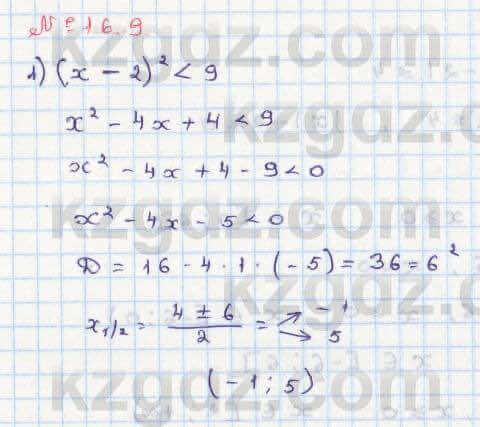 № 16.9
1) (x - 2)² < 9
x² - 4x + 4 < 9
x² - 4x + 4 - 9 < 0
x² - 4x - 5 < 0
D = 16 - 4 · 1 · (-5) = 36 = 6²
x₁/₂ = (4 ± 6)/2 = ↗ -1 ↘ 5
(-1; 5)
kzgdz.com
kzgdz.com
kzgdz.com
kzgdz.com
kzgdz.com